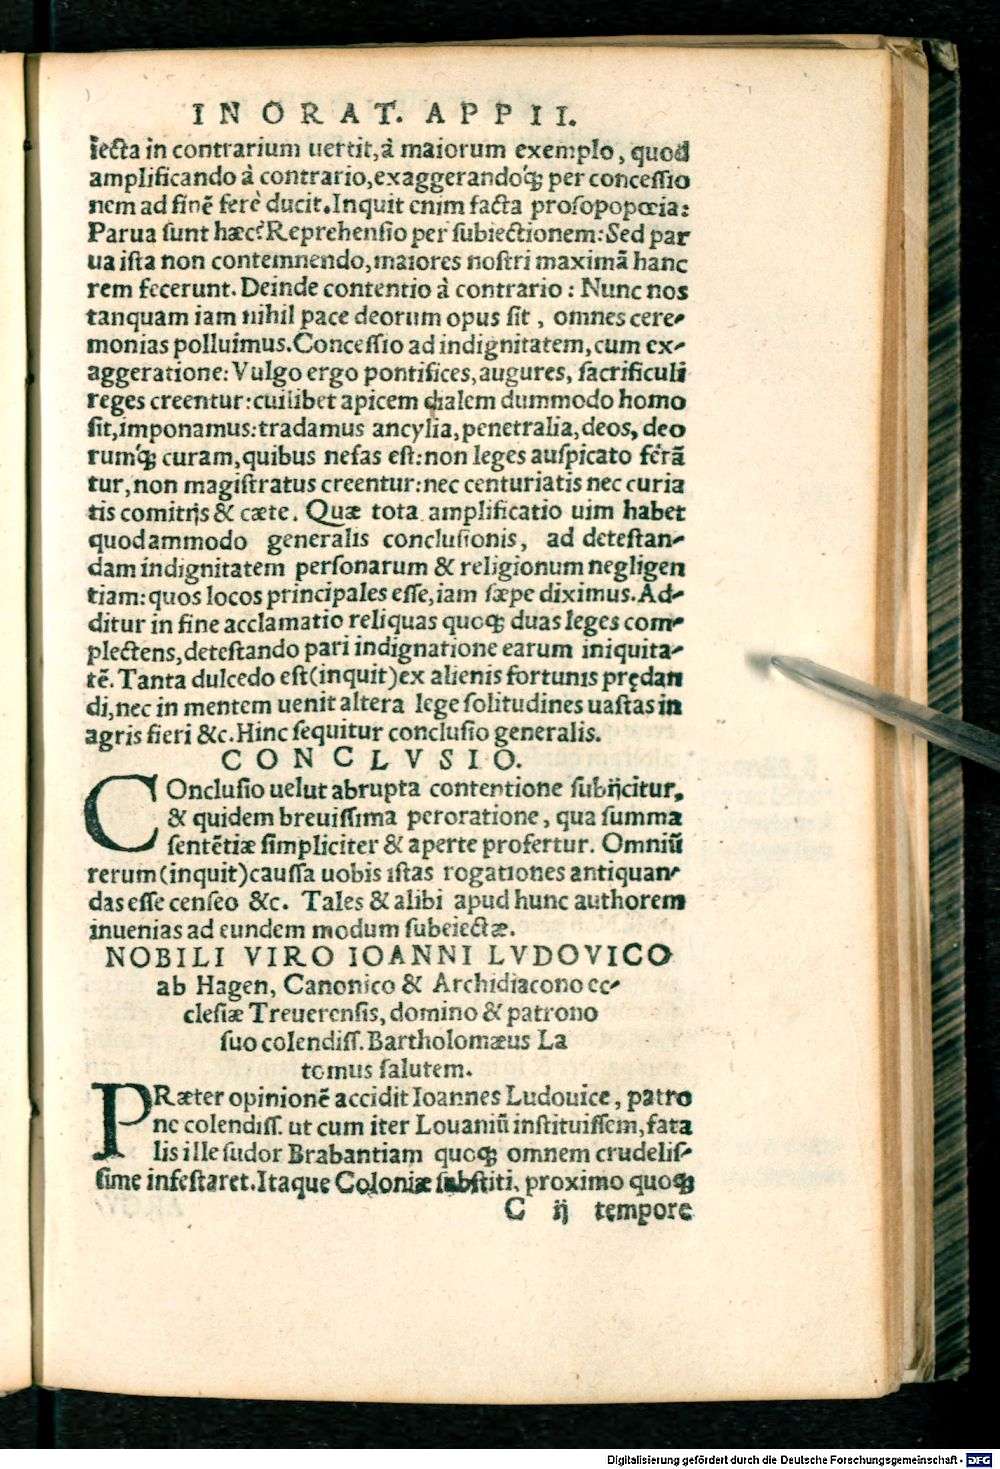 IN ORAT. APPII.
iecta in contrarium uertit, à maiorum exemplo, quod
amplificando à contrario, exaggerandoq́; per concessio
nem ad finē ferè ducit. Inquit enim facta prosopopœia:
Parua sunt hæc? Reprehensio per subiectionem: Sed par
ua ista non contemnendo, maiores nostri maximā hanc
rem fecerunt. Deinde contentio à contrario: Nunc nos
tanquam iam nihil pace deorum opus sit, omnes cere-
monias polluimus. Concessio ad indignitatem, cum ex-
aggeratione: Vulgo ergo pontifices, augures, sacrificuli
reges creentur: cuilibet apicem dialem dummodo homo
sit, imponamus: tradamus ancylia, penetralia, deos, deo
rumq́; curam, quibus nefas est: non leges auspicato ferā
tur, non magistratus creentur: nec centuriatis nec curia
tis comitijs & cæte. Quæ tota amplificatio uim habet
quodammodo generalis conclusionis, ad detestan-
dam indignitatem personarum & religionum negligen
tiam: quos locos principales esse, iam sæpe diximus. Ad-
ditur in fine acclamatio reliquas quoq; duas leges com-
plectens, detestando pari indignatione earum iniquita-
tē. Tanta dulcedo est (inquit) ex alienis fortunis prędan
di, nec in mentem uenit altera lege solitudines uastas in
agris fieri &c. Hinc sequitur conclusio generalis.
CONCLVSIO.
COnclusio uelut abrupta contentione subijcitur,
& quidem breuissima peroratione, qua summa
sentētiæ simpliciter & aperte profertur. Omniū
rerum (inquit) caussa uobis istas rogationes antiquan-
das esse censeo &c. Tales & alibi apud hunc authorem
inuenias ad eundem modum subeiectæ.
NOBILI VIRO IOANNI LVDOVICO
ab Hagen, Canonico & Archidiacono ec-
clesiæ Treuerensis, domino & patrono
suo colendiss. Bartholomæus La
tomus salutem.
PRæter opinionē accidit Ioannes Ludouice, patro
ne colendiss. ut cum iter Louaniū instituissem, fata
lis ille sudor Brabantiam quoq; omnem crudelis-
sime infestaret. Itaque Coloniæ substiti, proximo quoq;
C ij tempore
Digitalisierung gefördert durch die Deutsche Forschungsgemeinschaft - DFG